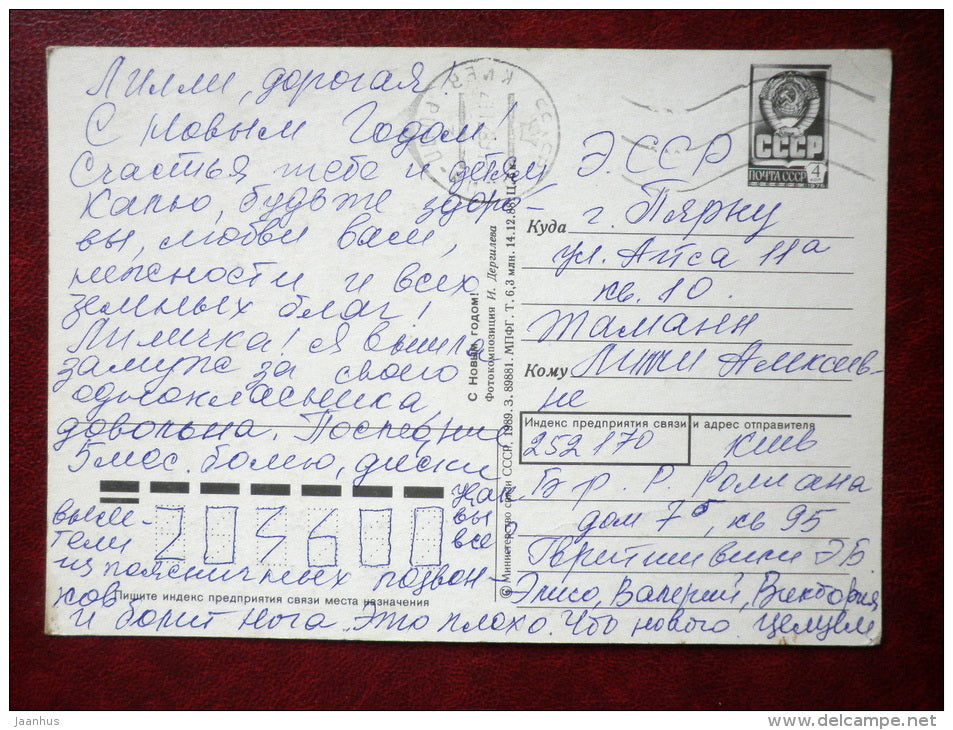 Лилли, дорогая!
С Новым Годом!
Счастья тебе и детям
Капю, будьже здоро-
вы, любви вам,
нежности и всех
земных благ!
Лиличка! Я вышла
замуж за своего
одноклассника,
довольна. Последние
5 мес. болею, диски
выле-
тели
из поясничных позвон-
ков
и болит нога. Это плохо. Что нового
Как
вы
все?
203600
Пишите индекс предприятия связи места назначения
С Новым годом!
Фотокомпозиция И. Дергилева
© Министерство связи СССР, 1989. З. 89881. МПФГ. Т. 6,3 млн. 14.12.88. Ц. 6 к.
СССР
ПОЧТА СССР
4
1976
Э. ССР
Куда г. Пярну
ул. Айса 11а
кв. 10.
Таманн
Кому Лилли Алексеев-
не
Индекс предприятия связи и адрес отправителя
252170 Киев
Бр. Р. Роллана
дом 7б, кв 95
Э. Б.
Элисо, Валерий, Виктория
целуем
Jaanhus
www.delcampe.net